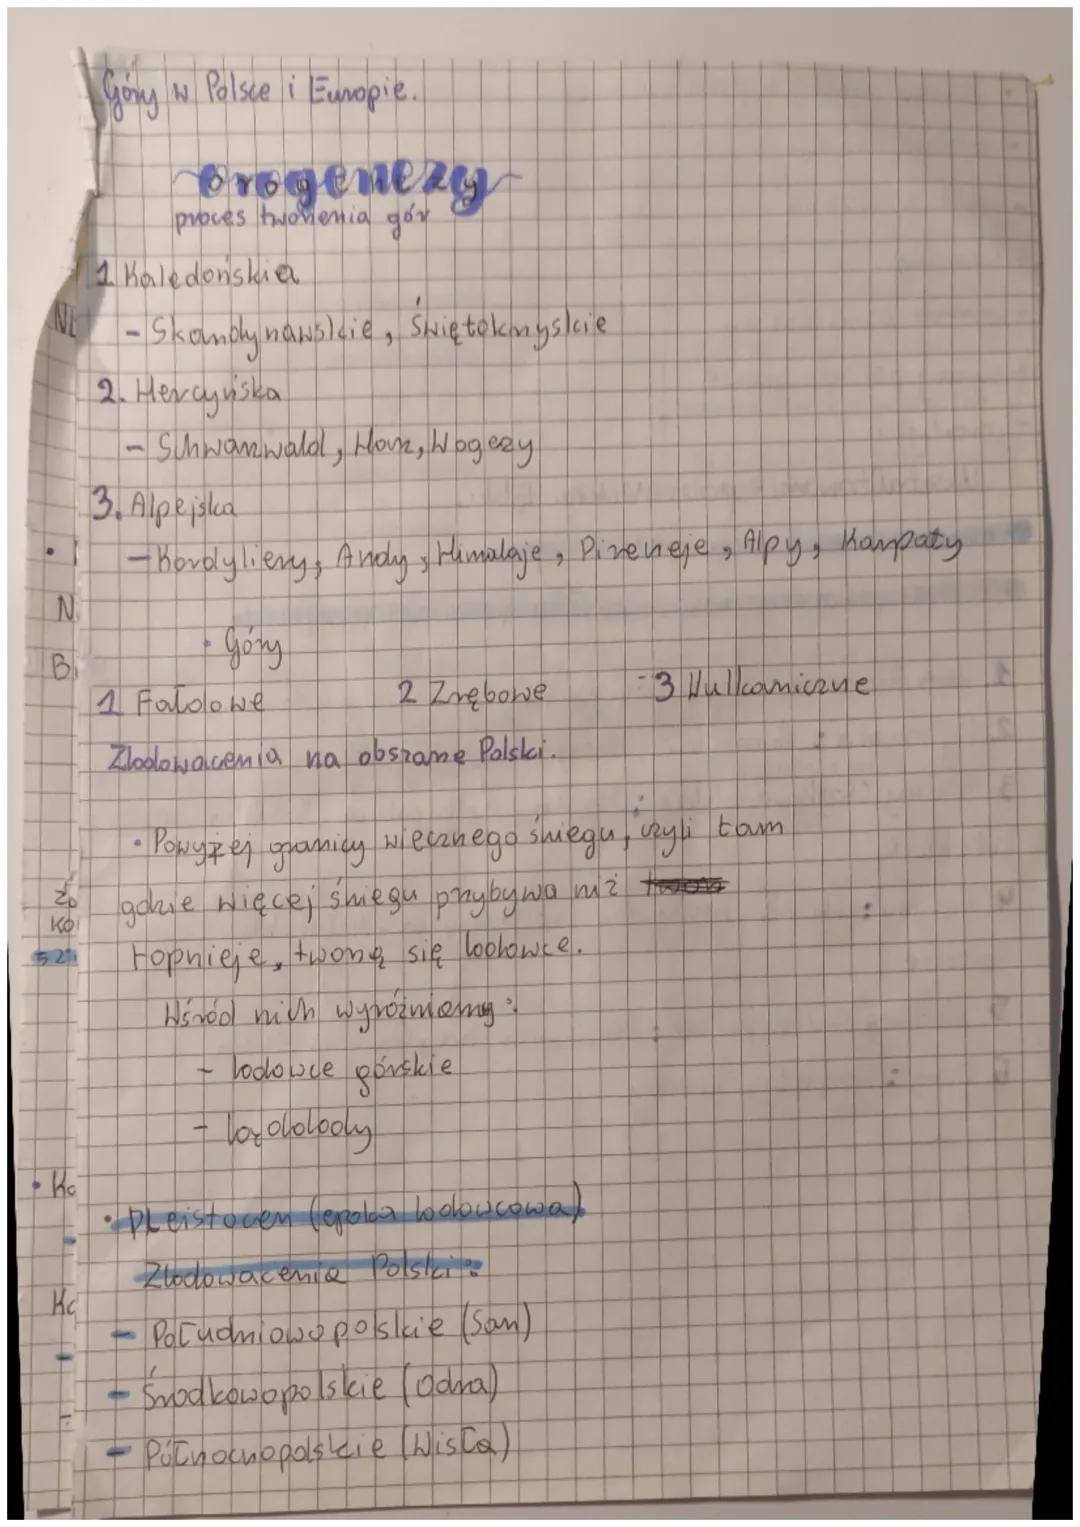 Góry w Polsce i Europie.
orogenezy
proces tworzenia gór
1 Kaledońskia
- Skandynawskie, Świętokrzyskie
2. Hercyńska
- Schwarzwald, Harz, Wogezy
3. Alpejska
- Kordyliery, Andy, Himalaje, Pireneje, Alpy, Karpaty
• Góry
1 Fałdowe 2 Zrębowe - 3 Wulkaniczne
Zlodowacenia na obszarze Polski.
• Powyżej granicy wiecznego śniegu, czyli tam
gdzie więcej śniegu przybywa niż
topnieje, tworzą się lodowce.
Wśród nich wyróżniamy:
- lodowce górskie
- lądolody
• PLeistocen (epoka lodowcowa)
Zlodowacenia Polski:
- Południowopolskie (San)
- Środkowopolskie (Odra)
- Północnopolskie (Wisła)